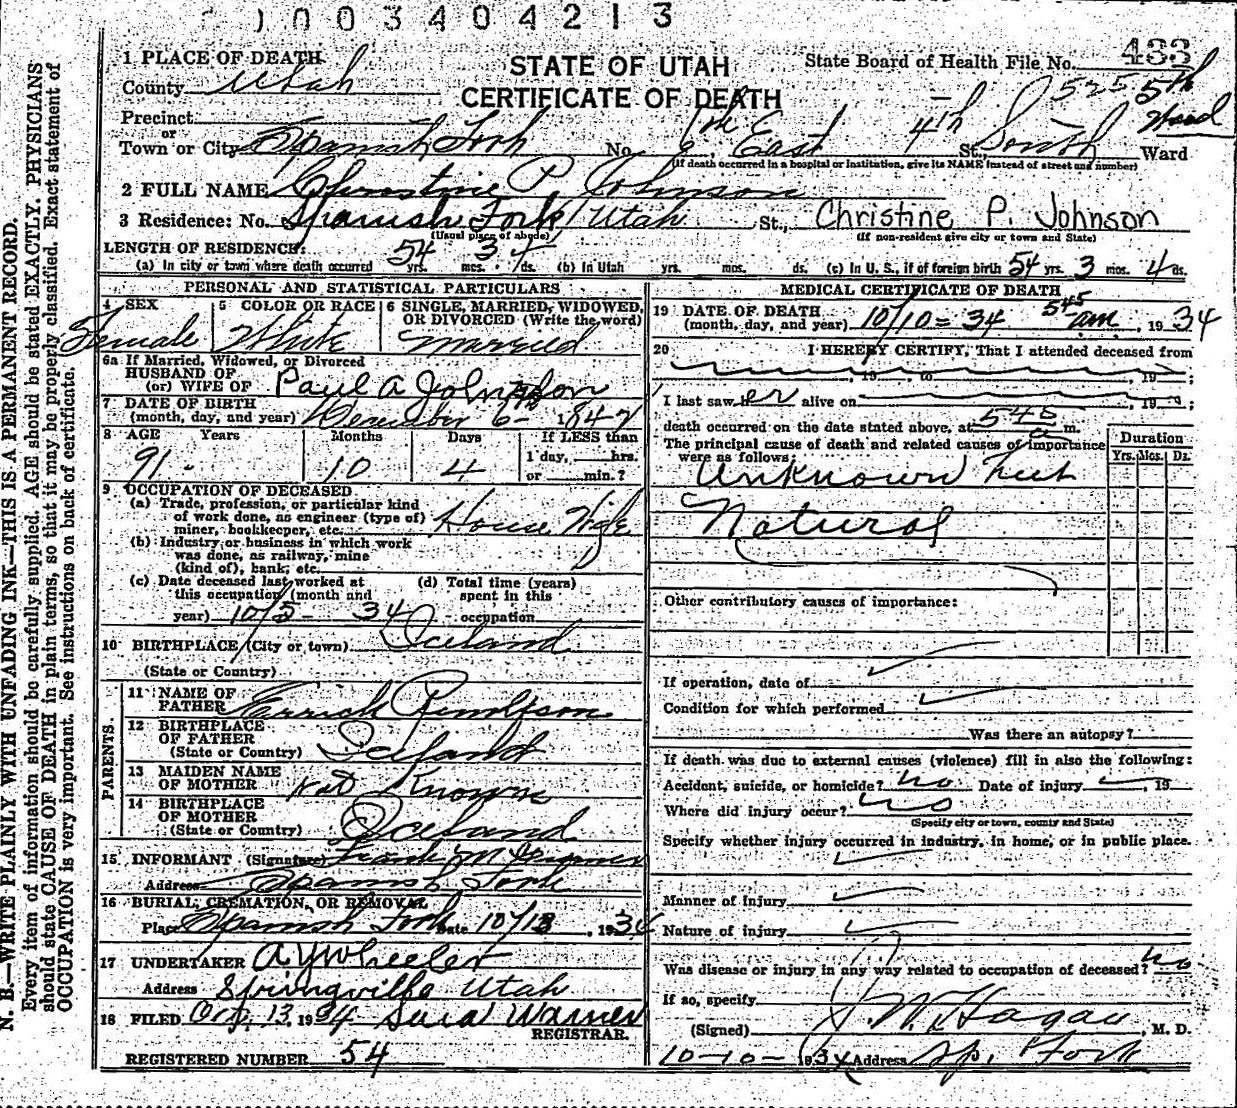 003404213
N. B.—WRITE PLAINLY WITH UNFADING INK—THIS IS A PERMANENT RECORD.
Every item of information should be carefully supplied. AGE should be stated EXACTLY. PHYSICIANS
should state CAUSE OF DEATH in plain terms, so that it may be properly classified. Exact statement of
OCCUPATION is very important. See instructions on back of certificate.
STATE OF UTAH
CERTIFICATE OF DEATH
State Board of Health File No. 433
525 5th
Ward
1 PLACE OF DEATH
County Utah
Precinct
or
Town or City Spanish Fork No. East 4th St., South Ward
(If death occurred in a hospital or institution, give its NAME instead of street and number)
2 FULL NAME Christine P. Johnson
3 Residence: No. Spanish Fork Utah St., Christine P. Johnson
(Usual place of abode) (If non-resident give city or town and State)
LENGTH OF RESIDENCE:
(a) In city or town where death occurred 54 yrs. 3 mos. 4 ds. (b) In Utah yrs. mos. ds. (c) In U. S., if of foreign birth 54 yrs. 3 mos. 4 ds.
PERSONAL AND STATISTICAL PARTICULARS
4 SEX
Female
5 COLOR OR RACE
White
6 SINGLE, MARRIED, WIDOWED,
OR DIVORCED (Write the word)
Married
6a If Married, Widowed, or Divorced
HUSBAND OF
(or) WIFE OF Paul A Johnson
7 DATE OF BIRTH
(month, day, and year) December 6- 1842
8 AGE Years Months Days If LESS than
1 day, hrs.
or min.?
91 10 4
9 OCCUPATION OF DECEASED
(a) Trade, profession, or particular kind
of work done, as engineer (type of)
miner, bookkeeper, etc. House Wife
(b) Industry or business in which work
was done, as railway, mine
(kind of), bank, etc.
(c) Date deceased last worked at
this occupation (month and
year) 10/5- 34
(d) Total time (years)
spent in this
occupation
10 BIRTHPLACE (City or town) Iceland
(State or Country)
PARENTS
11 NAME OF
FATHER
12 BIRTHPLACE
OF FATHER
(State or Country) Iceland
13 MAIDEN NAME
OF MOTHER Not Known
14 BIRTHPLACE
OF MOTHER
(State or Country) Iceland
15 INFORMANT (Signature) Frank M
Address Spanish Fork
16 BURIAL, CREMATION, OR REMOVAL
Place Spanish Fork Date 10/13, 1934
17 UNDERTAKER A Y Wheeler
Address Springville Utah
18 FILED Oct, 13, 1934 Warner
REGISTRAR.
REGISTERED NUMBER 54
MEDICAL CERTIFICATE OF DEATH
19 DATE OF DEATH
(month, day, and year) 10/10 = 34 545 am, 1934
20 I HEREBY CERTIFY, That I attended deceased from
, 19 , to , 19 ;
I last saw her alive on , 19 ;
death occurred on the date stated above, at 545 a m.
The principal cause of death and related causes of importance
were as follows:
Duration
Yrs. Mos. Ds.
Unknown but
Natural
Other contributory causes of importance:
If operation, date of
Condition for which performed
Was there an autopsy?
If death was due to external causes (violence) fill in also the following:
Accident, suicide, or homicide? no Date of injury , 19
Where did injury occur? no
(Specify city or town, county and State)
Specify whether injury occurred in industry, in home, or in public place.
Manner of injury
Nature of injury
Was disease or injury in any way related to occupation of deceased? no
If so, specify
(Signed) J. W. Hagan, M. D.
10-10-1934 Address Sp. Fork